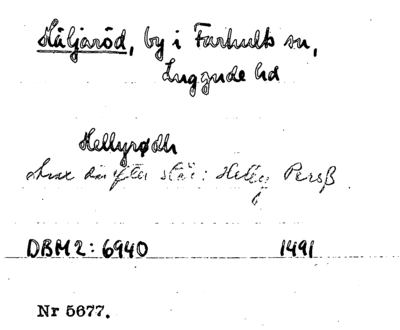 Häljaröd, by i Farhults sn,
Luggude hd
Hellyrødh
står: Helly Persß
DBM2: 6940 1491
Nr 5677.